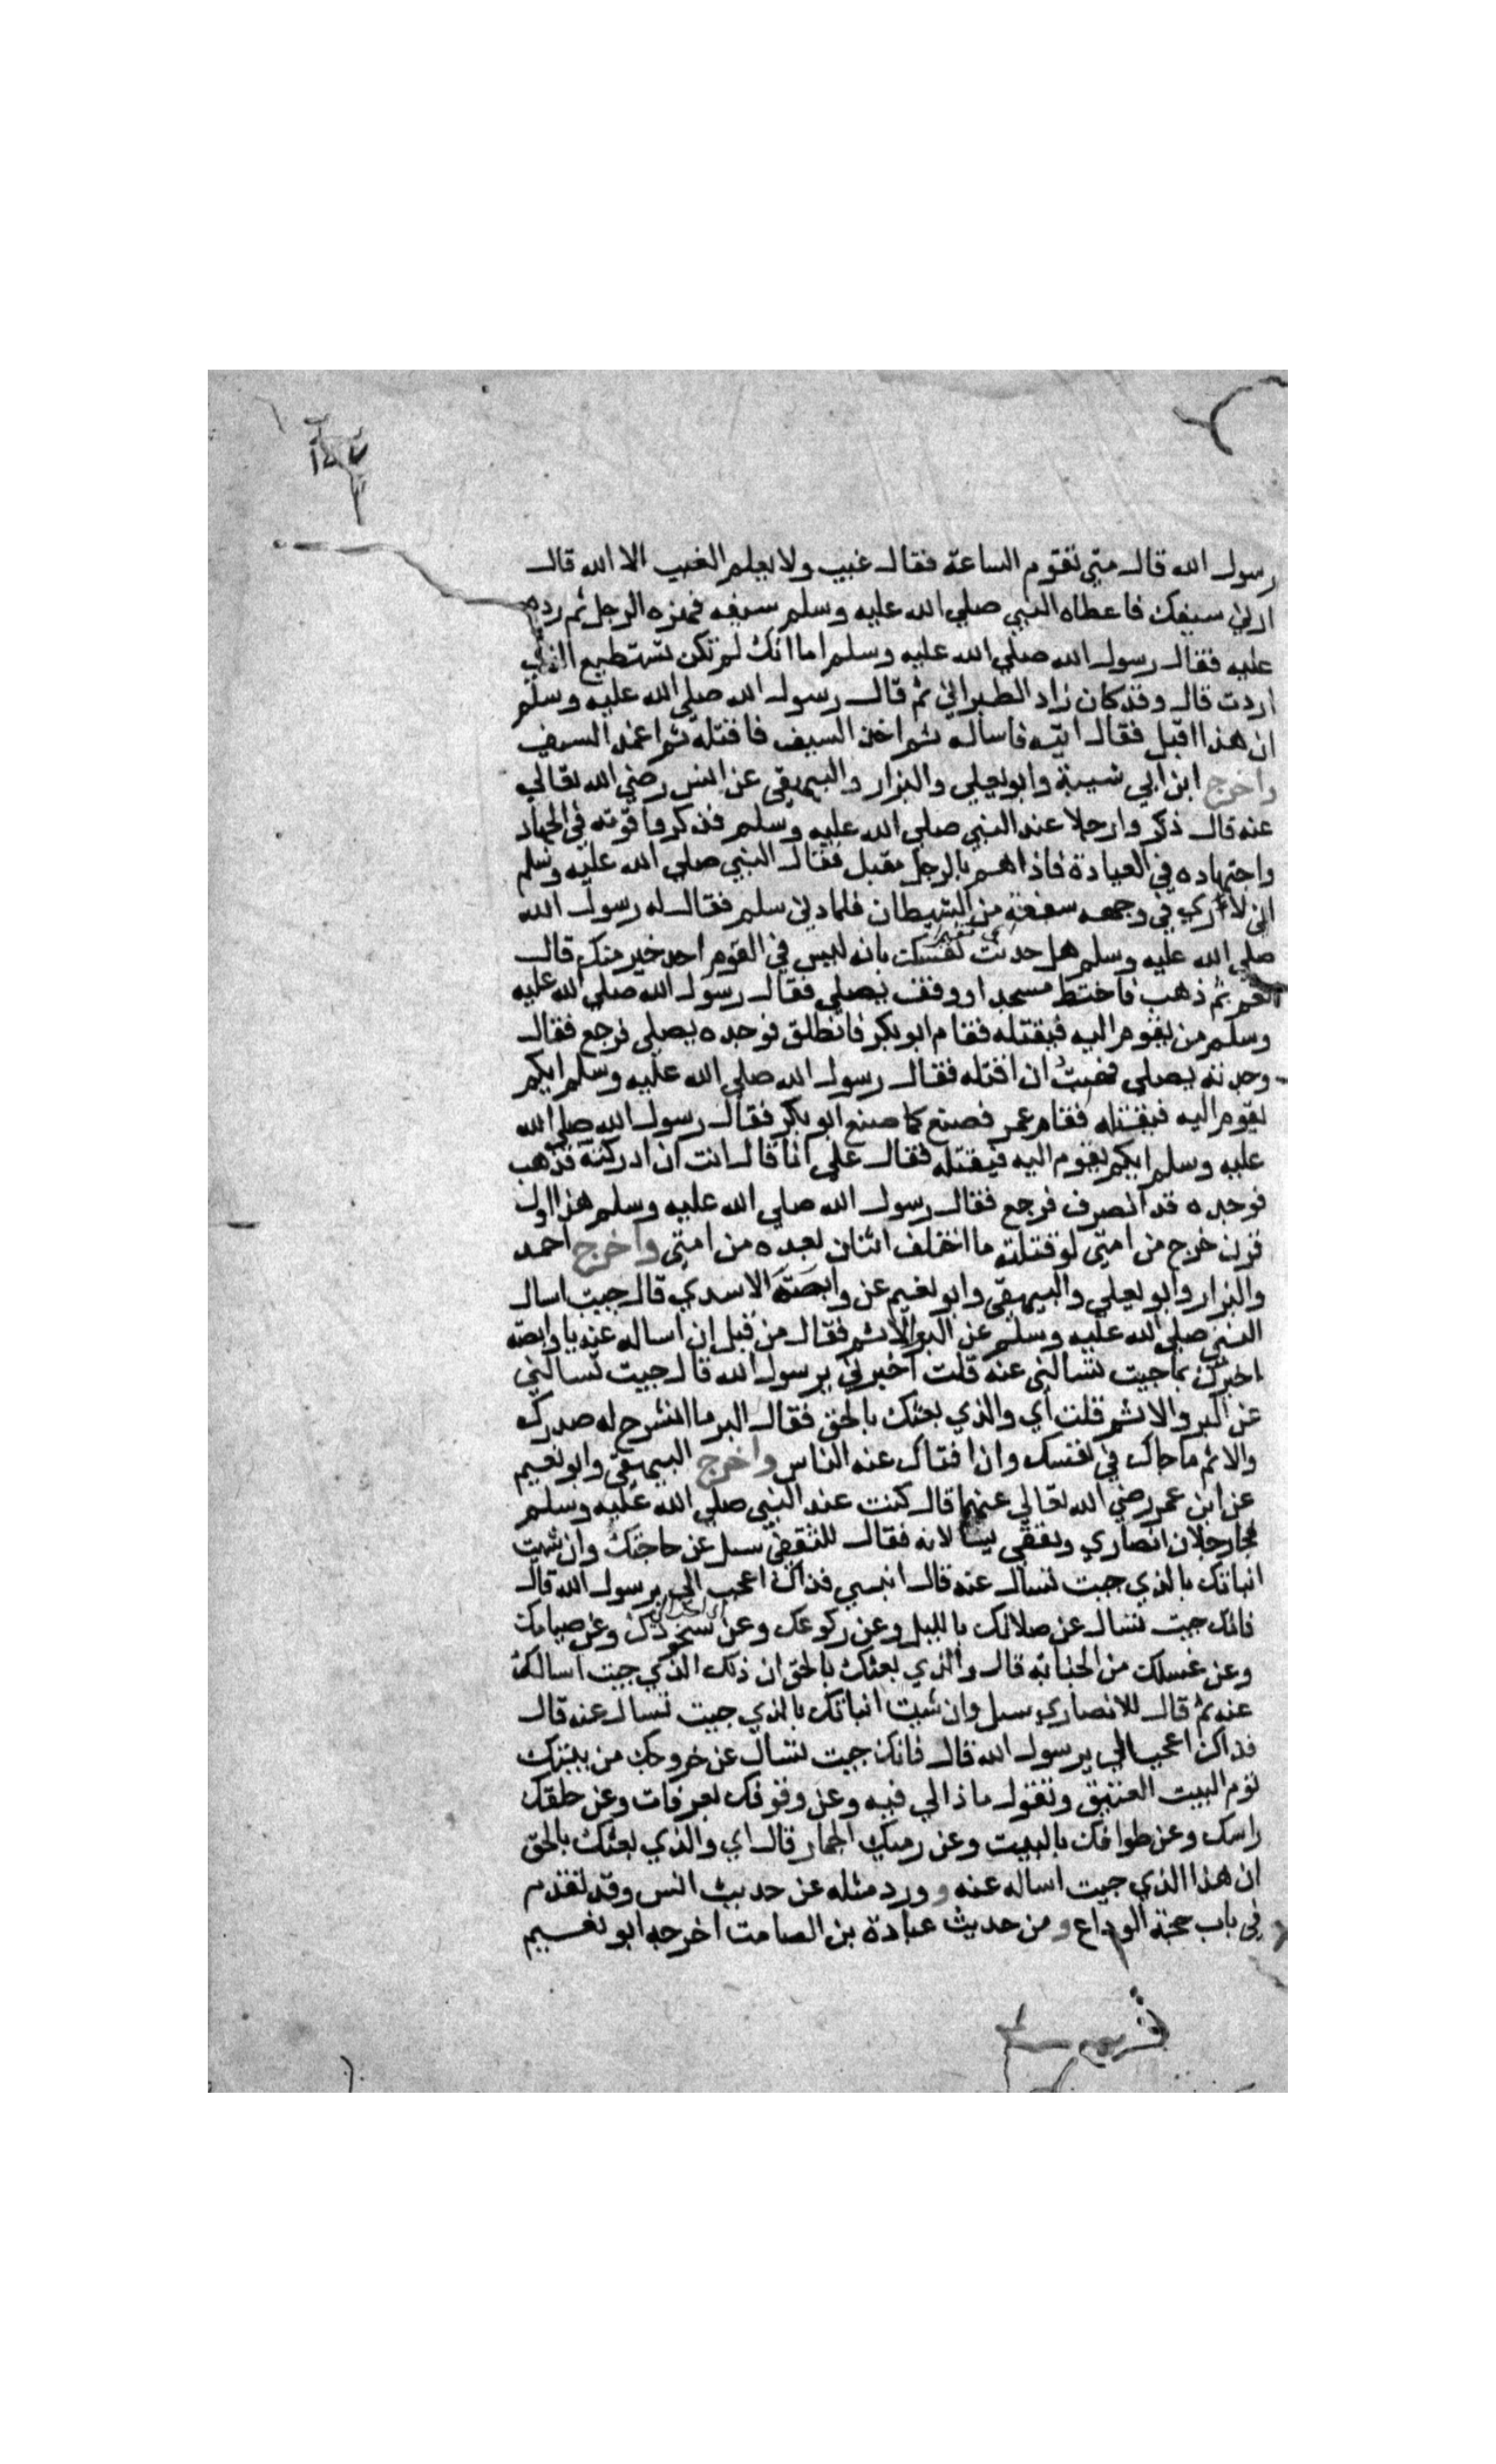 رسول الله قال متي تقوم الساعة فقال غيب ولا يعلم الغيب الا الله قال
ارني سيفك فاعطاه النبي صلي الله عليه وسلم سيفه فهزه الرجل ثم رده
عليه فقال رسول الله صلي الله عليه وسلم اما انك لم تكن تستطيع الذي
اردت قال وقد كان زاد الطبراني ثم قال رسول الله صلي الله عليه وسلم
ان هذا اقبل فقال اتيه فاساله ثم اخذ السيف فاقتله ثم اغمد السيف
واخرج ابن ابي شيبة وابو يعلي والبزار والبيهقي عن انس رضي الله تعالي
عنه قال ذكروا رجلا عند النبي صلي الله عليه وسلم فذكروا قوته في الجهاد
واجتهاده في العبادة فاذا هم بالرجل مقبل فقال النبي صلي الله عليه وسلم
اني لا اري في وجهه سفعة من الشيطان فلما دني سلم فقال له رسول الله
صلي الله عليه وسلم هل حدثت نفسك بانه ليس في القوم احد خير منك قال
نعم ثم ذهب فاختط مسجدا ووقف يصلي فقال رسول الله صلي الله عليه
وسلم من يقوم اليه فيقتله فقام ابو بكر فانطلق فوجده يصلي فرجع فقال
وجدته يصلي فهبت ان اقتله فقال رسول الله صلي الله عليه وسلم ايكم
يقوم اليه فيقتله فقام عمر فصنع كما صنع ابو بكر فقال رسول الله صلي الله
عليه وسلم ايكم يقوم اليه فيقتله فقال علي انا قال انت ان ادركته فذهب
فوجده قد انصرف فرجع فقال رسول الله صلي الله عليه وسلم هذا اول
قرن خرج من امتي لو قتلته ما اختلف اثنان بعده من امتي واخرج احمد
والبزار وابو يعلي والبيهقي وابو نعيم عن وابصة الاسدي قال جيت اسال
النبي صلي الله عليه وسلم عن البر والاثم فقال من قبل ان اساله عنه يا وابصة
اخبرك بما جيت تسالني عنه قلت اخبرني يرسول الله قال جيت تسالني
عن البر والاثم قلت اي والذي بعثك بالحق فقال البر ما انشرح له صدرك
والاثم ما حاك في نفسك وان افتاك عنه الناس واخرج البيهقي وابو نعيم
عن ابن عمر رضي الله تعالي عنهما قال كنت عند النبي صلي الله عليه وسلم
فجا رجلان انصاري وثقفي يسالانه فقال للثقفي سل عن حاجتك وان شيت
انباتك بالذي جيت تسال عنه قال انبيني فذاك اعجب الي يرسول الله قال
فانك جيت تسال عن صلاتك بالليل وعن ركوعك وعن سجودك وعن صيامك
وعن غسلك من الجنابه قال والذي بعثك بالحق ان ذلك الذي جيت اسالك
عنه ثم قال للانصاري سل وان شيت انباتك بالذي جيت تسال عنه قال
فذاك اعجب الي يرسول الله قال فانك جيت تسال عن خروجك من بيتك
تؤم البيت العتيق وتقول ماذا لي فيه وعن وقوفك بعرفات وعن حلقك
راسك وعن طوافك بالبيت وعن رميك الجمار قال اي والذي بعثك بالحق
ان هذا الذي جيت اساله عنه وورد مثله عن حديث انس وقد تقدم
في باب حجة الوداع ومن حديث عبادة بن الصامت اخرجه ابو نعيم